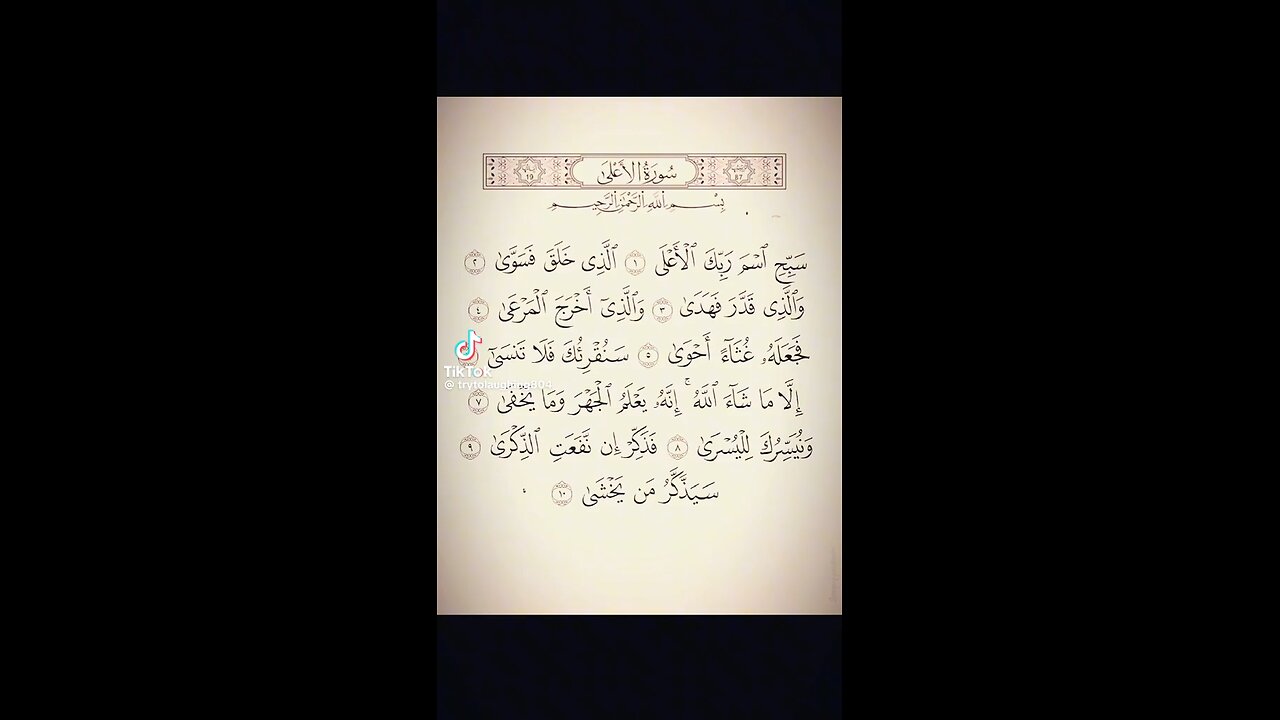 سُورَةُ الأَعْلَىٰ
بِسْمِ اللَّهِ الرَّحْمَٰنِ الرَّحِيمِ
سَبِّحِ ٱسْمَ رَبِّكَ ٱلْأَعْلَى ١ ٱلَّذِى خَلَقَ فَسَوَّىٰ ٢
وَٱلَّذِى قَدَّرَ فَهَدَىٰ ٣ وَٱلَّذِىٓ أَخْرَجَ ٱلْمَرْعَىٰ ٤
فَجَعَلَهُۥ غُثَآءً أَحْوَىٰ ٥ سَنُقْرِئُكَ فَلَا تَنسَىٰٓ
إِلَّا مَا شَآءَ ٱللَّهُ ۚ إِنَّهُۥ يَعْلَمُ ٱلْجَهْرَ وَمَا يَخْفَىٰ ٧
وَنُيَسِّرُكَ لِلْيُسْرَىٰ ٨ فَذَكِّرْ إِن نَّفَعَتِ ٱلذِّكْرَىٰ ٩
سَيَذَّكَّرُ مَن يَخْشَىٰ ١٠
TikTok